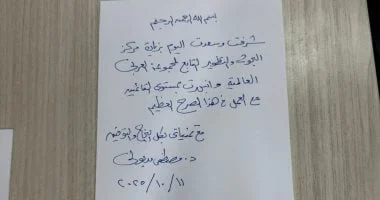 بسم الله الرحمن الرحيم
شرفت وسعدت اليوم بزيارة مركز
البحوث والتطوير التابع لمجموعة العربى
العالمية وانبهرت بمستوى
مع العمل فى هذا الصرح العظيم
مع تمنياتى بكل النجاح والتوفيق
د. مصطفى مدبولى
٢٠٢٥/١٠/١١